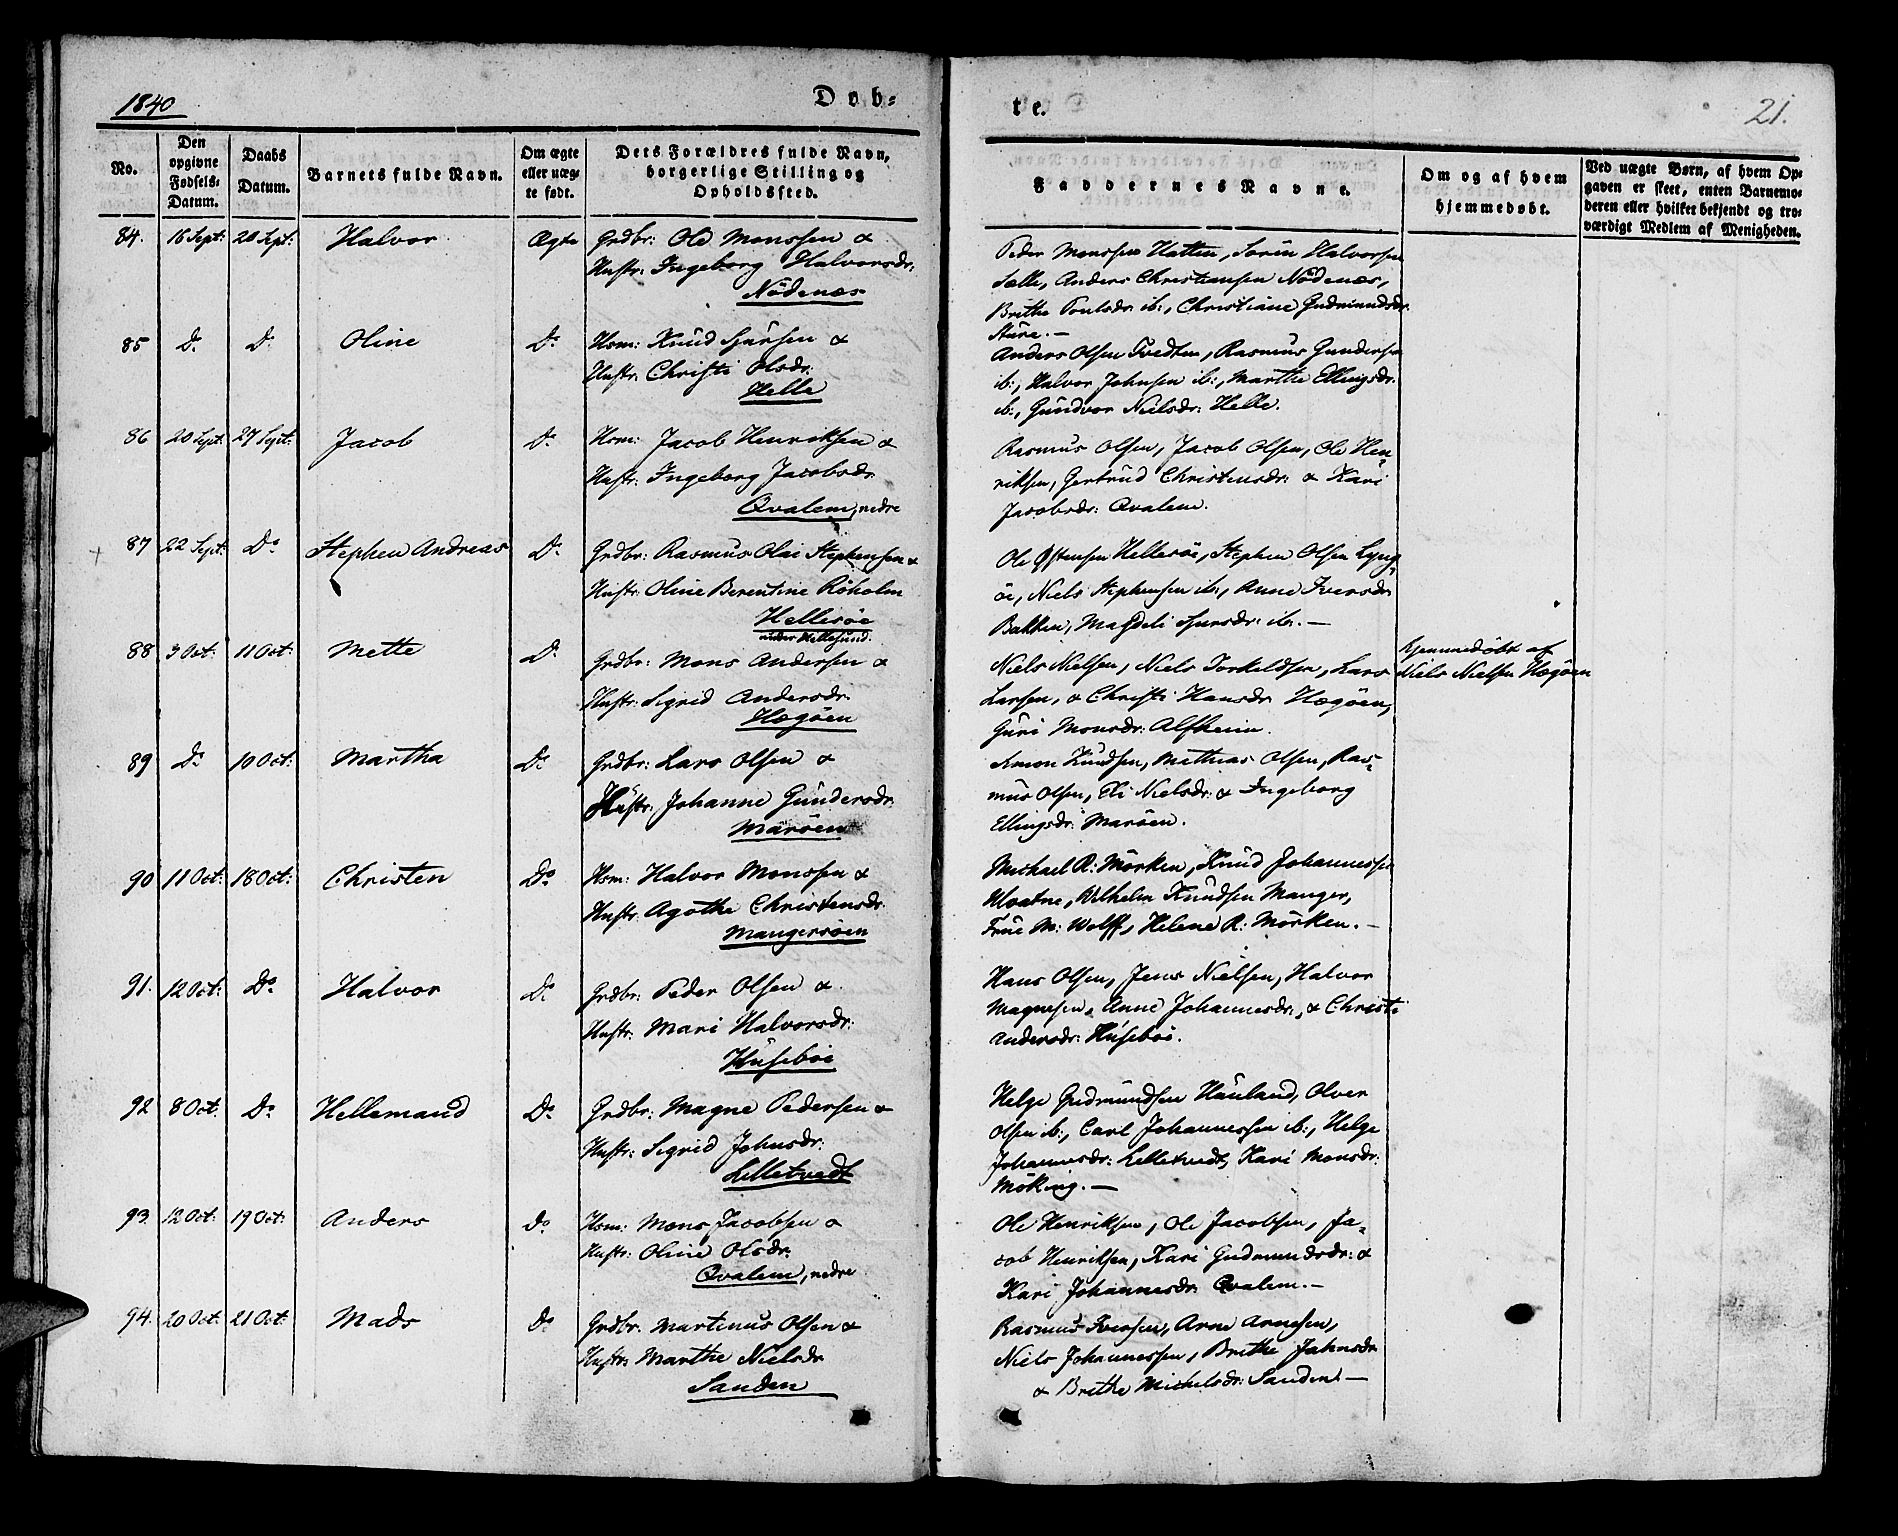 1840
Døb-
te.
21.
No.
Den opgivne Fødsels-Datum.
Daabs Datum.
Barnets fulde Navn.
Om ægte eller uægte født.
Dets Forældres fulde Navn, borgerlige Stilling og Opholdssted.
Faddernes Navne.
Om og af hvem hjemmedøbt.
Ved uægte Børn, af hvem Op-
gaven er skeet, enten Barnemo-
deren eller hvilket bekjendt og tro-
værdigt Medlem af Menigheden.
84. 16 Sept: 20 Sept: Halvor Ægte Grdbr: Ole Monssen &
Hustr: Ingeborg Halvorsdr:
Nödenæs
Peder Monssen Hatten, Sörin Halvorsen
Sælle, Anders Christensen Nödenæs,
Brithe Poulsdr: ib:, Christiane Gudmundsdr:
Sture. —
85 D. D. Oline D. Hsm: Knud Sjursen &
Hustr: Christi Olsdr:
Helle
Anders Olsen Tvedten, Rasmus Gundersen
ib:, Halvor Johnsen ib:, Marthe Ellingsdr:
ib:, Gundvor Nielsdr: Helle.
86 20 Sept: 27 Sept: Jacob D. Hsm: Jacob Henriksen &
Hustr: Ingeborg Jacobsdr:
Qvalem, nedre
Rasmus Olsen, Jacob Olsen, Ole Hen-
riksen, Gertrud Christensdr: & Kari
Jacobsdr: Qvalem.
87 22 Sept: Do Stephen Andreas D. Grdbr: Rasmus Olai Stephensen &
Hustr: Oline Berentine Röholm
Hellesöe
under Hellesund.
Ole Östensen Hellesöe, Stephen Olsen Lyng-
öe, Niels Stephensen ib:, Anne Iversdr:
Bakken, Magdeli Sjursdr: ib. —
88 3 Oct: 11 Oct: Mette D. Grdbr: Mons Andersen &
Hustr: Sigrid Andersdr:
Hægöen
Niels Nielsen, Niels Torkeldsen, Lars
Larsen, & Christi Hansdr: Hægöen,
Guri Monsdr: Alfheim.
Hjemmedöbt af
Niels Nielsen Hægöen
89 Do 10 Oct: Martha Do Grdbr: Lars Olsen &
Hustr: Johanne Gundersdr:
Maröen
Simon Knudsen, Mathias Olsen, Ras-
mus Olsen, Eli Nielsdr: & Ingeborg
Ellingsdr: Maröen.
90 11 Oct: 18 Oct: Christen Do Hsm: Halvor Monssen &
Hustr: Agathe Christensdr:
Mangersöen
Michael R: Mörken, Knud Johannessen
Hvatne, Wilhelm Knudsen Manger,
Frue M: Wolff, Helene R: Mörken. —
91. 12 Oct: Do Halvor D. Grdbr: Peder Olsen &
Hustr: Mari Halvorsdr:
Huseböe
Hans Olsen, Jens Nielsen, Halvor
Magnesen, Anne Johannesdr:, & Christi
Andersdr: Huseböe.
92 8 Oct: Do Hellemand Do Grdbr: Magne Pedersen &
Hustr: Sigrid Johnsdr:
Lilletvedt
Helge Gudmundsen Hauland, Olver
Olsen ib:, Carl Johannessen ib:, Helge
Johannesdr: Lilletvedt, Kari Monsdr:
Möking. —
93. 12 Oct: 19 Oct: Anders Do Hsm: Mons Jacobsen &
Hustr: Oline Olsdr:
Qvalem, nedre
Ole Henriksen, Ole Jacobsen, Ja-
cob Henriksen, Kari Gudmundsdr: &
Kari Johannesdr: Qvalem. —
94. 20 Oct: 21 Oct: Mads Do Grdbr: Martinus Olsen &
Hustr: Marthe Nielsdr:
Sanden
Rasmus Iversen, Arne Arnesen,
Niels Johannessen, Brithe Johnsdr:
& Brithe Michelsdr: Sanden. —